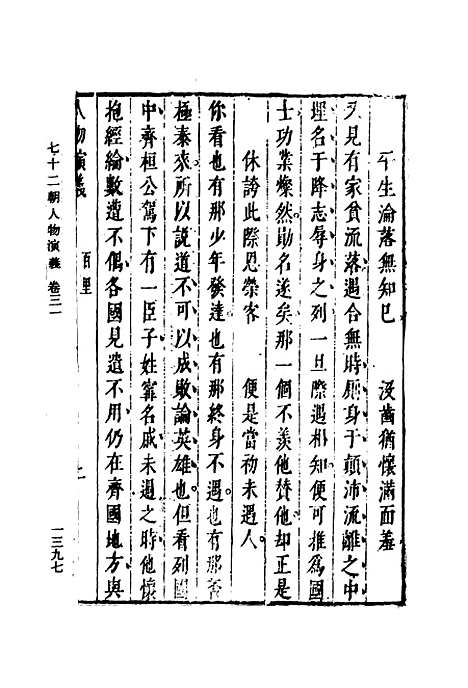 平生淪落無知已　沒齒猶懷滿面羞
又見有家貧流落遇合無時厄身于顛沛流離之中
埋名于降志辱身之列一旦際遇相知便可推為國
士功業燦然勛名遂矣那一個不羨他贊他却正是
休誇此際恩榮客　便是當初未遇人
你看也有那少年發達也有那終身不遇也有那否
極泰來所以說道不可以成敗論英雄也但看列國
中齊桓公駕下有一臣子姓甯名戚未遇之時他懷
抱經綸數遭不偶各國見遺不用仍在齊國地方與
人物演義　百里
七十二朝人物演義　卷三一
一三九七